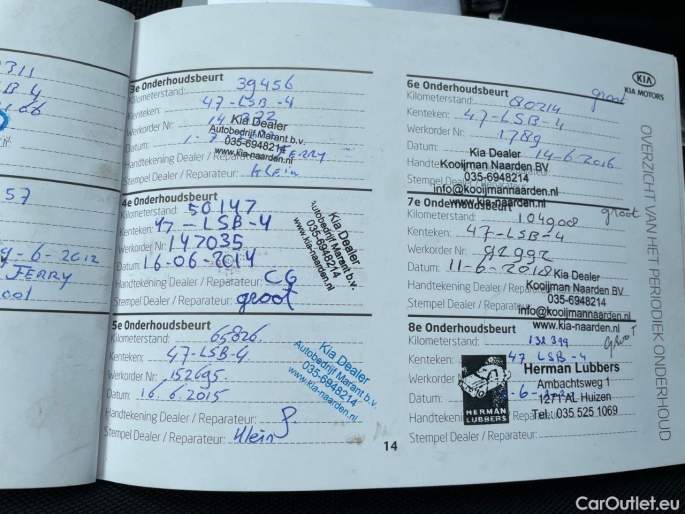 311
57
4-6-2012
FERRY
3e Onderhoudsbeurt
Kilometerstand: 39456
Kenteken: 47-LSB-4
Werkorder Nr:
Datum:
Kia Dealer
Autobedrijf Marant b.v.
035-6948214
www.kia-naarden.nl
Handtekening Dealer / Reparateur: FERRY
Stempel Dealer / Reparateur: klein
4e Onderhoudsbeurt
Kilometerstand: 50147
Kenteken: 47-LSB-4
Werkorder Nr: 147035
Datum: 16-06-2014
Handtekening Dealer / Reparateur: CG
Stempel Dealer / Reparateur: groot
Kia Dealer
Autobedrijf Marant b.v.
035-6948214
www.kia-naarden.nl
5e Onderhoudsbeurt
Kilometerstand: 65826
Kenteken: 47-LSB-4
Werkorder Nr: 152695
Datum: 16/6/2015
Handtekening Dealer / Reparateur:
Stempel Dealer / Reparateur: klein
Kia Dealer
Autobedrijf Marant b.v.
035-6948214
www.kia-naarden.nl
14
6e Onderhoudsbeurt groot
Kilometerstand: 80214
Kenteken: 47-LSB-4
Werkorder Nr: 1789
Datum: 14-6-2016
Kia Dealer
Kooijman Naarden BV
035-6948214
info@kooijmannaarden.nl
www.kia-naarden.nl
7e Onderhoudsbeurt groot
Kilometerstand: 104908
Kenteken: 47-LSB-4
Werkorder Nr: 92992
Datum: 11-6-2018
Kia Dealer
Kooijman Naarden BV
035-6948214
info@kooijmannaarden.nl
www.kia-naarden.nl
8e Onderhoudsbeurt
Kilometerstand: 132399 groot
Kenteken: 47 LSB-4
Werkorder
Datum:
Stempel Dealer / Reparateur:
HERMAN
LUBBERS
Herman Lubbers
Ambachtsweg 1
1271 AL Huizen
Tel. 035 525 1069
KIA
KIA MOTORS
OVERZICHT VAN HET PERIODIEK ONDERHOUD
CarOutlet.eu